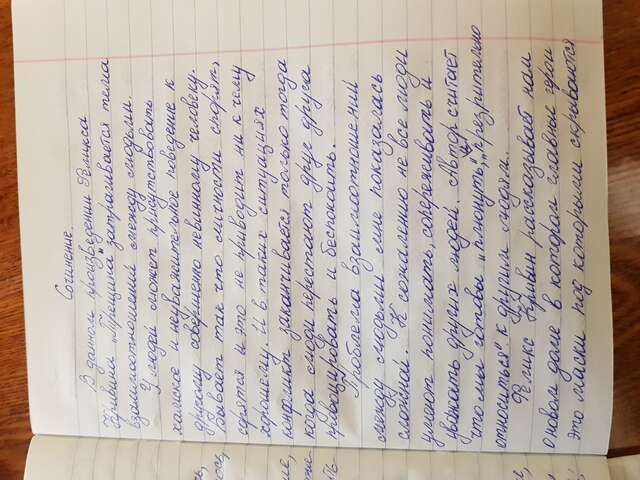 Сочинение.
В данном произведении Феликса
Кривина „Трещина" затрагивается тема
взаимоотношений между людьми.
У людей может присутствовать
хамское и неуважительное поведение к
другому совершенно невинному человеку.
Бывает так что личности спорят,
сорятся и это не приводит ни к чему
хорошему. И в таких ситуациях
конфликт заканчивается только тогда
когда люди перестают друг друга
провоцировать и беспокоить.
Проблема взаимоотношений
между людьми мне показалась
сложной. К сожалению не все люди
умеют понимать, сопереживать и
уважать других людей. Автор считает
что мы готовы „плюнуть", „презрительно
относиться" к другим людям.
Феликс Кривин рассказывает нам
о новом доме в котором главные герои
это маски под которыми скрываются